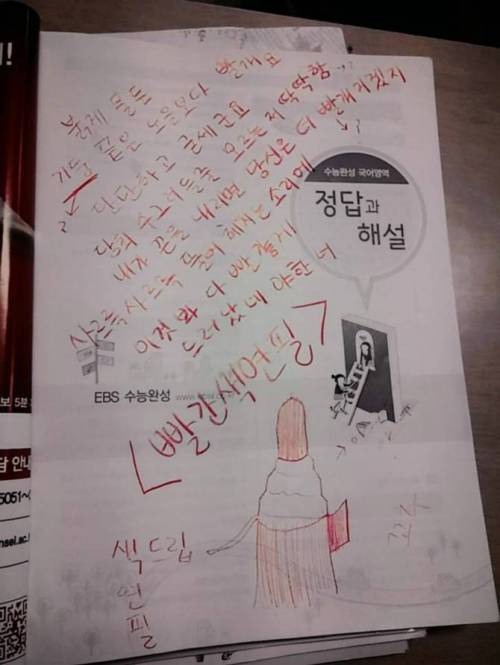 붉게 물든 노을보다 빨개요
기둥 같은
단단하고 굳세군요
당최 수그러들줄 모르는 저 딱딱함
내가 끈을 내리면 당신은 더 빨개지겠지
사르륵 사르륵 몸이 헤치는 소리에
이것 봐 다 빨갛게
드러났네 야한 너
「빨간색연필」
수능완성 국어영역
정답과
해설
EBS 수능완성
색드립
연
필
꼬추
보 5분
답 안내
5051~
nsei.ac.